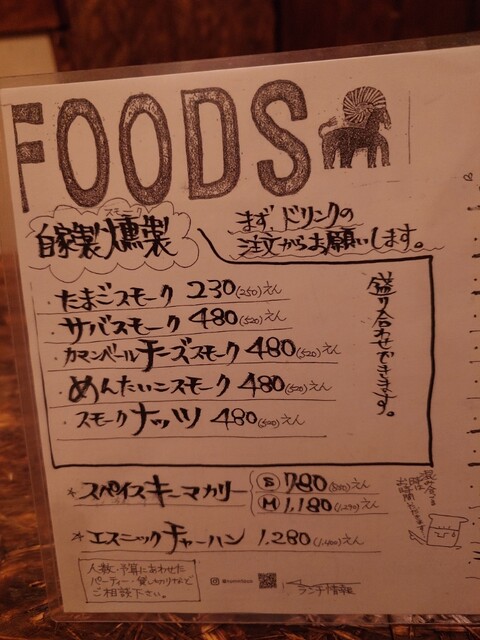 FOODS
スモーク
自家製燻製
まず、ドリンクの
注文からお願いします。
・たまごスモーク 230(250)えん
・サバスモーク 480(520)えん
・カマンベールチーズスモーク 480(520)えん
・めんたいこスモーク 480(520)えん
・スモークナッツ 480(520)えん
盛り合わせできます。
*スパイスキーマカリー
S 780 えん
M 1,180 えん
*エスニックチャーハン 1,280(1,400)えん
人数・予算にあわせた
パーティー・貸し切りなど
ご相談下さい。
ランチ情報